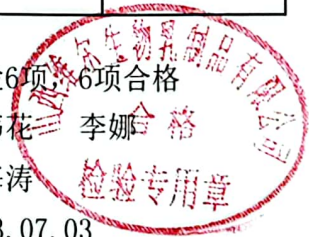 6项,6项合格
花 李娜
涛
.07.03
山西维尔生物乳制品有限公司
合格
检验专用章